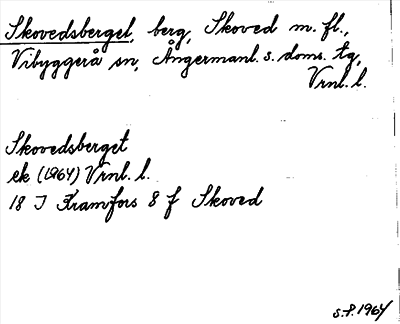 Skovedsberget, berg, Skoved m. fl.,
Vibyggerå sn, Ångermanl. s. doms. tg,
Vrnl. l.
Skovedsberget
ek (1964) Vrnl. l.
18 J Kramfors 8 f Skoved
S.P. 1964